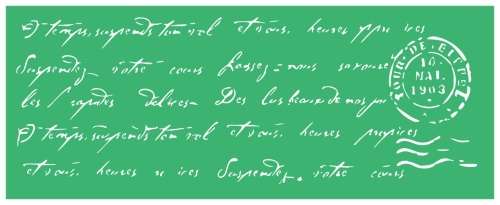 Ô temps, suspends ton vol et vous, heures prop ices
Suspendez votre cours Laissez-nous savourer
les rapides délices Des plus beaux de nos jou
Ô temps, suspends ton vol et vous, heures propices
et vous, heures p ices Suspendez votre cours
TOUR-DE-EIFFEL
16
MAI.
1903